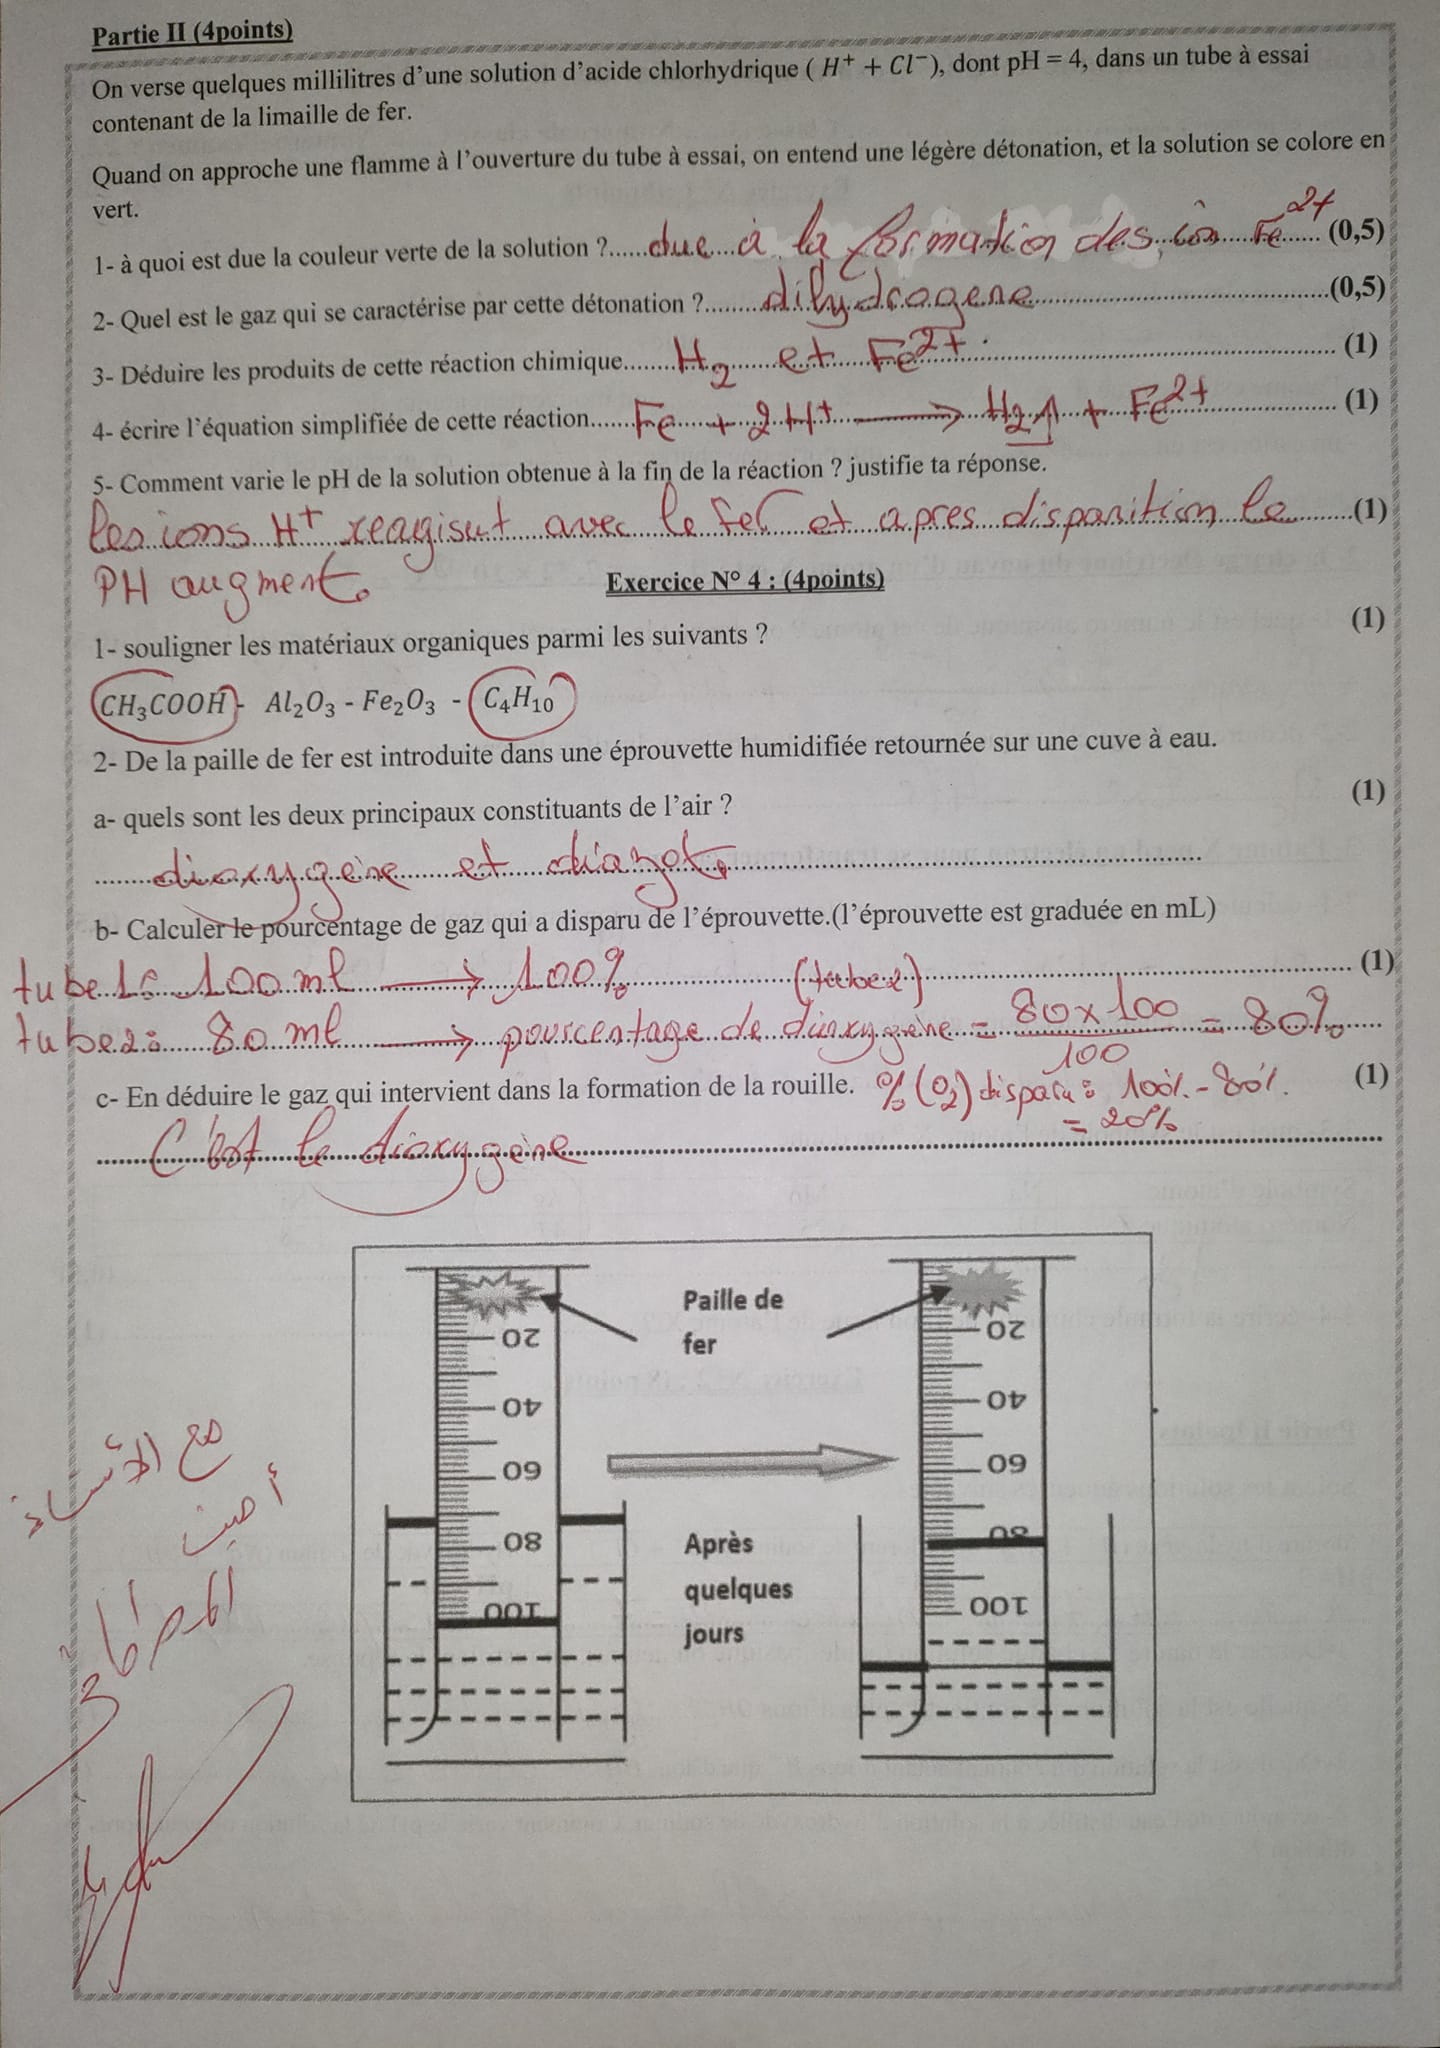 Partie II (4points)
On verse quelques millilitres d'une solution d'acide chlorhydrique ( H⁺ + Cl⁻), dont pH = 4, dans un tube à essai
contenant de la limaille de fer.
Quand on approche une flamme à l'ouverture du tube à essai, on entend une légère détonation, et la solution se colore en
vert.
1- à quoi est due la couleur verte de la solution ?......due à la formation des ion Fe²⁺ (0,5)
2- Quel est le gaz qui se caractérise par cette détonation ?........dihydrogene (0,5)
3- Déduire les produits de cette réaction chimique........H₂ et Fe²⁺. (1)
4- écrire l'équation simplifiée de cette réaction......Fe + 2H⁺ → H₂↑ + Fe²⁺ (1)
5- Comment varie le pH de la solution obtenue à la fin de la réaction ? justifie ta réponse.
les ions H⁺ reagisent avec le fer et apres disparition le (1)
PH augment.
Exercice N° 4 : (4points)
1- souligner les matériaux organiques parmi les suivants ? (1)
CH₃COOH - Al₂O₃ - Fe₂O₃ - C₄H₁₀
2- De la paille de fer est introduite dans une éprouvette humidifiée retournée sur une cuve à eau.
a- quels sont les deux principaux constituants de l'air ? (1)
dioxygène et diazot.
b- Calculer le pourcentage de gaz qui a disparu de l'éprouvette.(l'éprouvette est graduée en mL)
tube1: 100 ml → 100% (tube2) (1)
tube2: 80 ml → pourcentage de dioxygène = 80 x 100 / 100 = 80%
c- En déduire le gaz qui intervient dans la formation de la rouille. %(O₂) disparu: 100% - 80% (1)
= 20%
C'est le dioxygène
Paille de
fer
20
40
60
80
100
20
40
60
80
100
Après
quelques
jours
مع الأستاذ